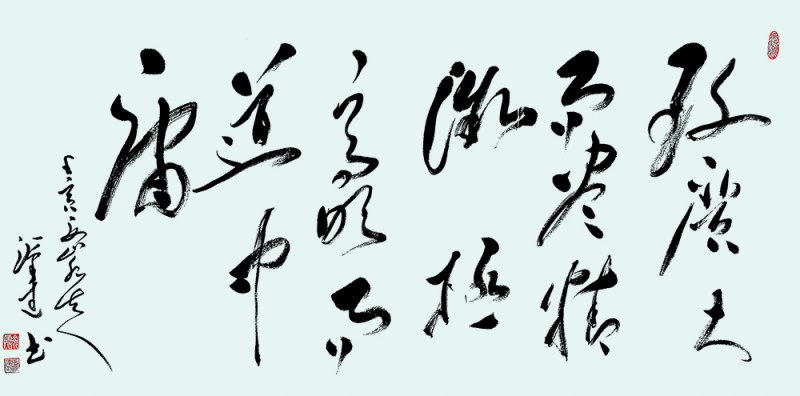 致广大
而尽精
微极
高明而
道中
庸